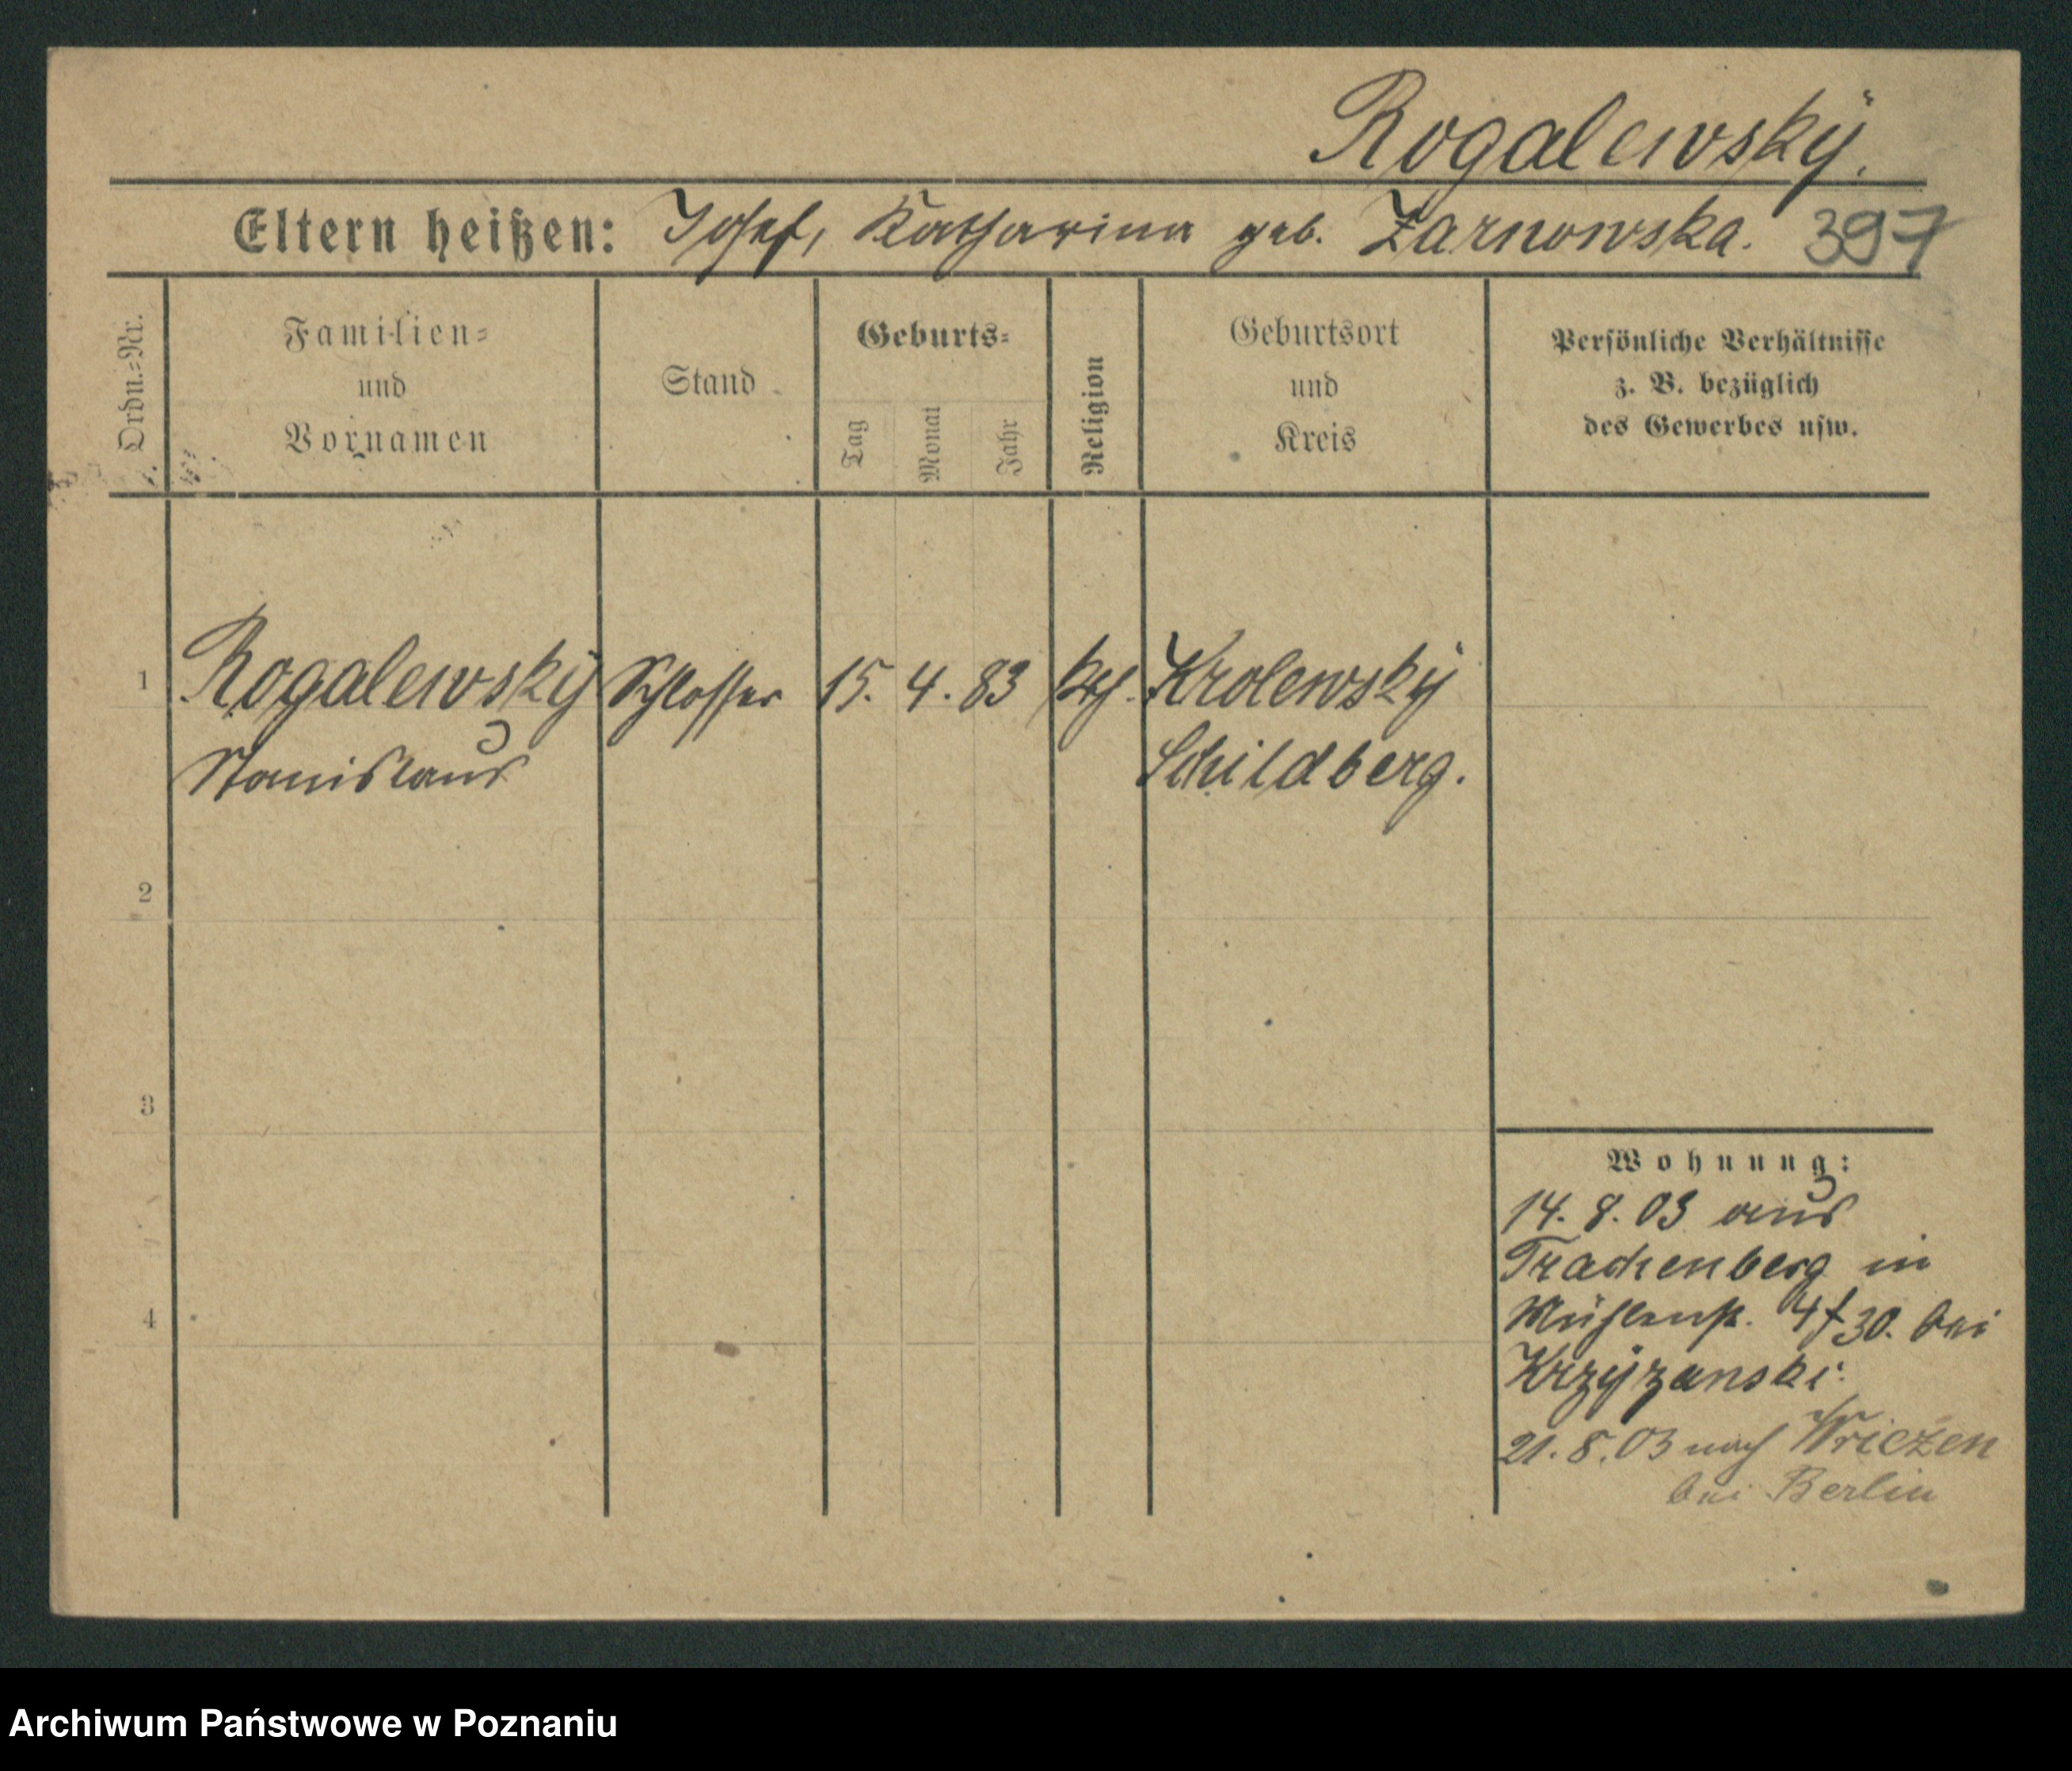 Rogalewskÿ.
Eltern heißen: Josef, Katharina geb. Zarnowska. 397
Ordn.=Nr.
Familien=
und
Vornamen
Stand
Geburts=
Tag
Monat
Jahr
Religion
Geburtsort
und
Kreis
Persönliche Verhältnisse
z. B. bezüglich
des Gewerbes usw.
1 Rogalewskÿ Schlosser 15. 4. 83 kth. Krolewskÿ
Stanislaus Schildberg.
2
3
4
Wohnung:
14. 8. 03 aus
Trachenberg in
Mühlenstr. 30. bei
Krzÿzanski.
21. 8. 03 nach Wriezen
bei Berlin
Archiwum Państwowe w Poznaniu